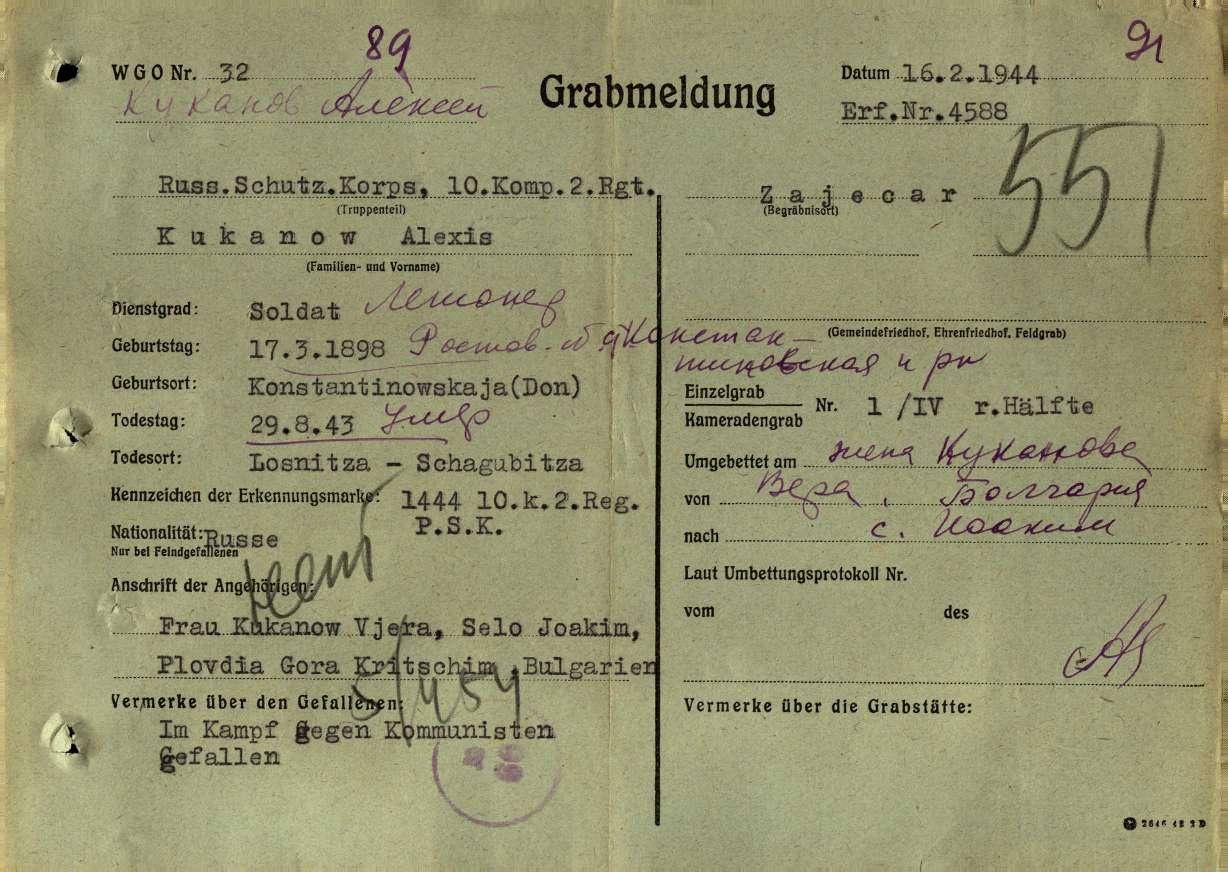 89
91
WGO Nr. 32
Куканов Алексей
Grabmeldung
Datum 16.2.1944
Erf.Nr.4588
551
Russ.Schutz.Korps, 10.Komp.2.Rgt.
(Truppenteil)
Kukanow Alexis
(Familien- und Vorname)
Dienstgrad: Soldat
Geburtstag: 17.3.1898 Ростов.
Geburtsort: Konstantinowskaja(Don)
Todestag: 29.8.43 умер
Todesort: Losnitza - Schagubitza
Kennzeichen der Erkennungsmarke: 1444 10.k.2.Reg.
P.S.K.
Nationalität: Russe
Nur bei Feindgefallenen
Anschrift der Angehörigen:
Frau Kukanow Vjera, Selo Joakim,
Plovdia Gora Kritschim, Bulgarien
Vermerke über den Gefallenen:
Im Kampf gegen Kommunisten
Gefallen
Zajecar
(Begräbnisort)
(Gemeindefriedhof, Ehrenfriedhof, Feldgrab)
Einzelgrab
Kameradengrab
Nr. 1 /IV r.Hälfte
Umgebettet am жена Куканова
von Вера, Болгария
nach с. Иоаким
Laut Umbettungsprotokoll Nr.
vom des
Vermerke über die Grabstätte: